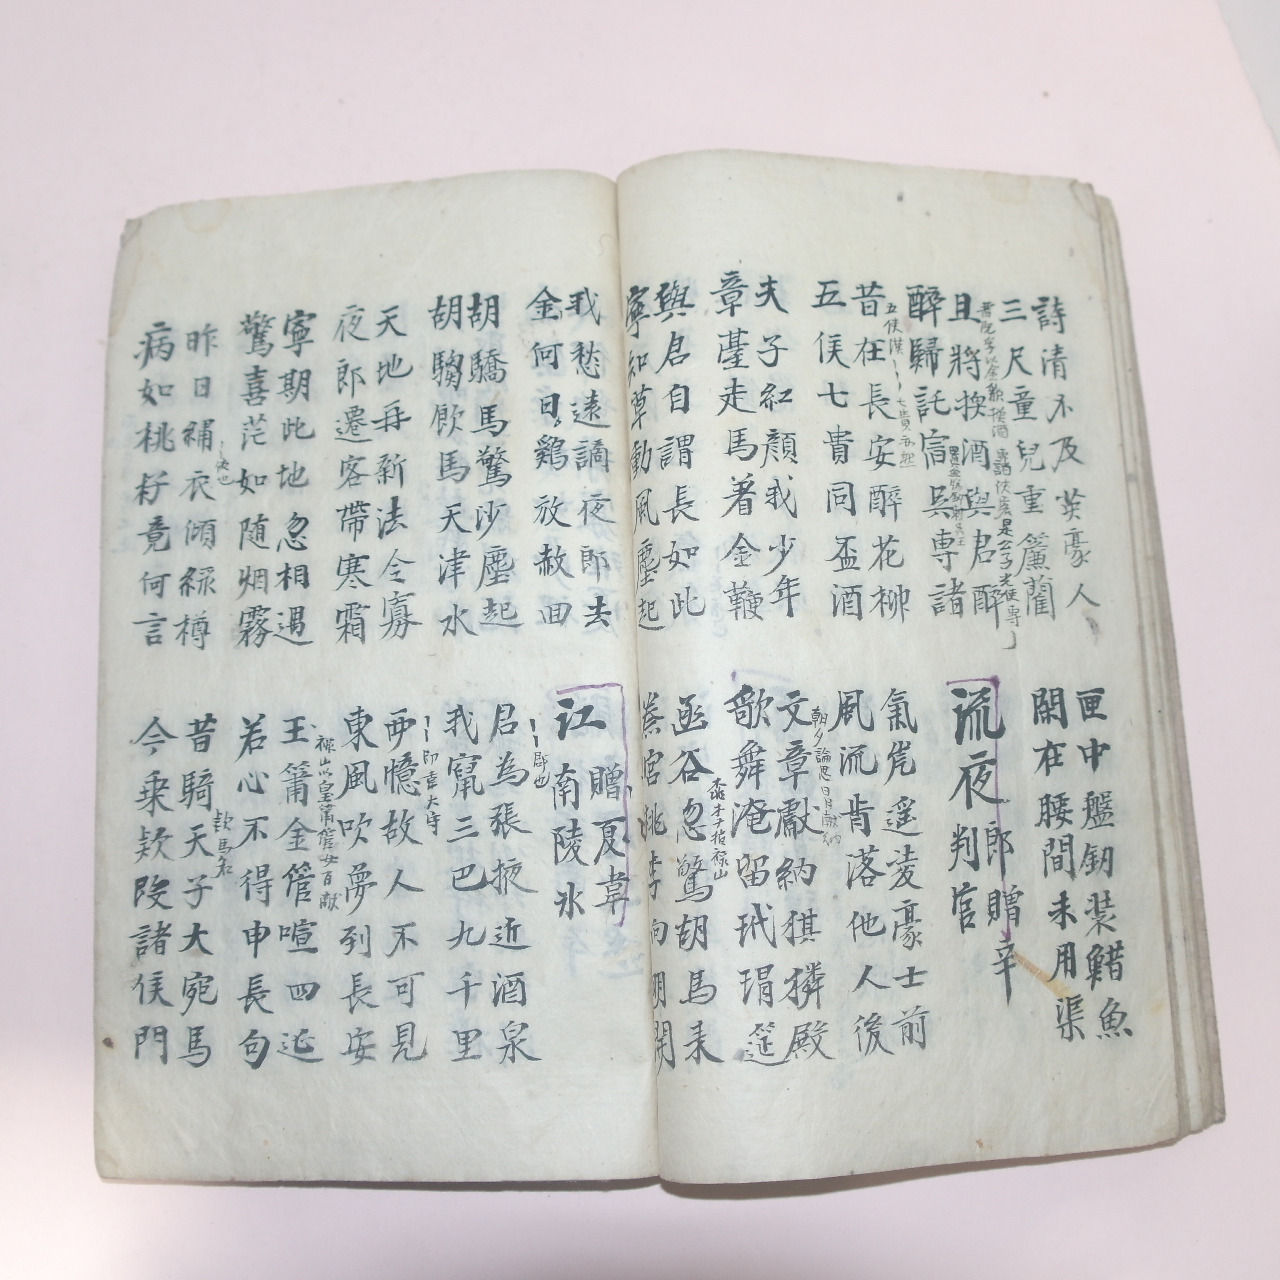 詩清不及英豪人
三尺童兒重簾藺
匣中盤釰装䱜魚
閑在腰間未用渠
且將按酒與君醉
醉歸託宿吳専諸
流夜郎贈辛判官
昔在長安醉花柳
五侯七貴同盃酒
氣岸遥凌豪士前
風流肯落他人後
朝夕論思日月献納
夫子紅顔我少年
章臺走馬着金鞭
文章獻納猉獜殿
歌舞淹留玳瑁筵
與君自謂長如此
寧知草動風塵起
函谷忽驚胡馬来
宮桃李向明開
我愁遠謫夜郎去
金何日鷄放赦回
江南陵氷贈夏韋
胡驕馬驚沙塵起
胡騶飮馬天津水
君為張掖近酒泉
我竄三巴九千里
天地再新法令寡
夜郎遷客帶寒霜
西憶故人不可見
東風吹夢到長安
寧期此地忽相遇
驚喜茫如随烟霧
王簫金管喧四筵
若心不得申長句
昨日補衣傾綠樽
病如桃籽竟何言
昔騎天子大宛馬
欵馬名
今乗欵段諸侯門